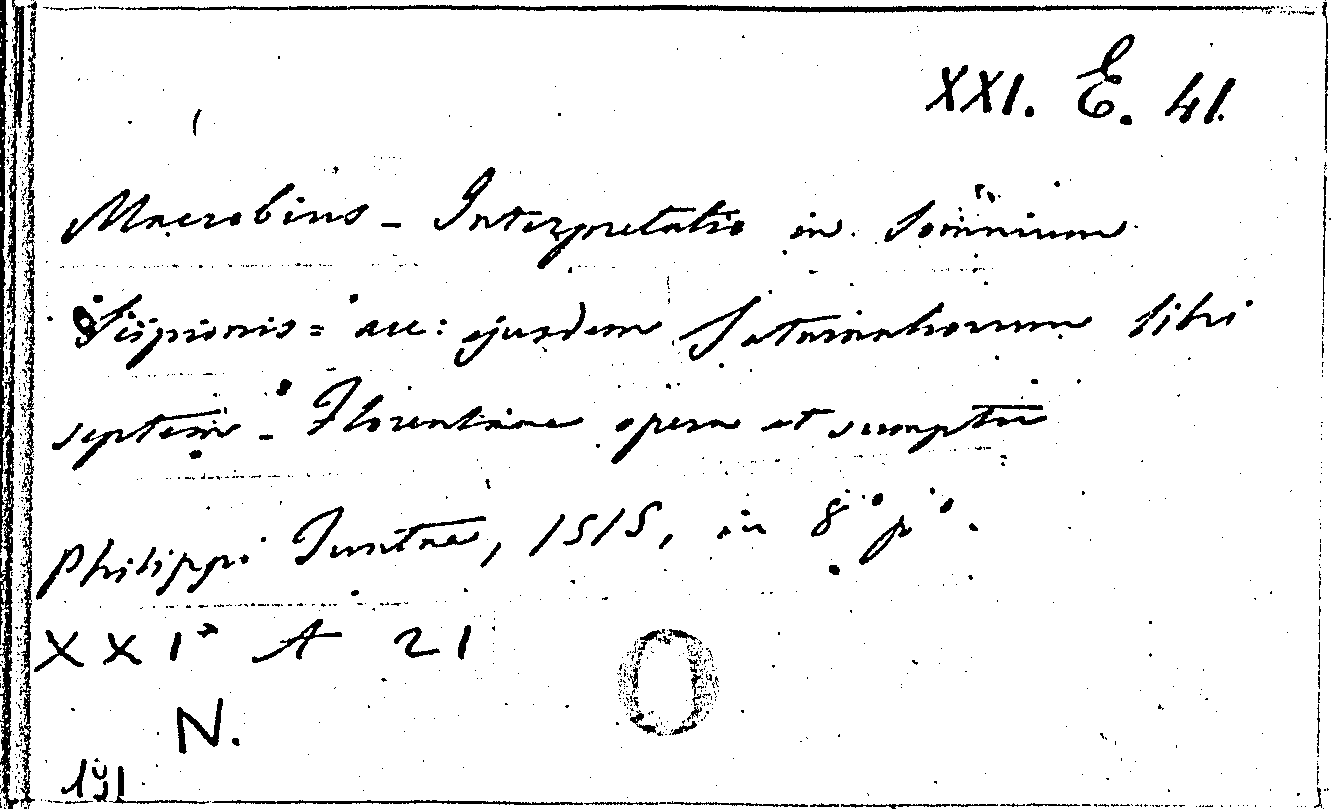 XXI. E. 41.
Macrobius - Interpretatio in Somnium
Scipionis = acc: ejusdem Saturnaliorum libri
septem - Florentiae opera et sumptu
Philippi Juntae, 1515, in 8° p°.
XXI A 21
O
N.
191